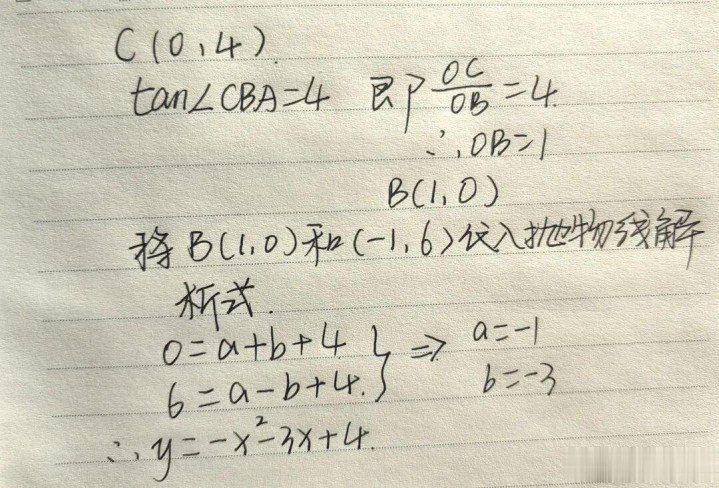 C(0,4).
tan∠CBA=4 即 OC/OB =4.
∴OB=1
B(1,0)
将B(1,0)和(-1,6)代入抛物线解
析式.
0=a+b+4 } ⇒ a=-1
6=a-b+4. } b=-3
∴y=-x²-3x+4.